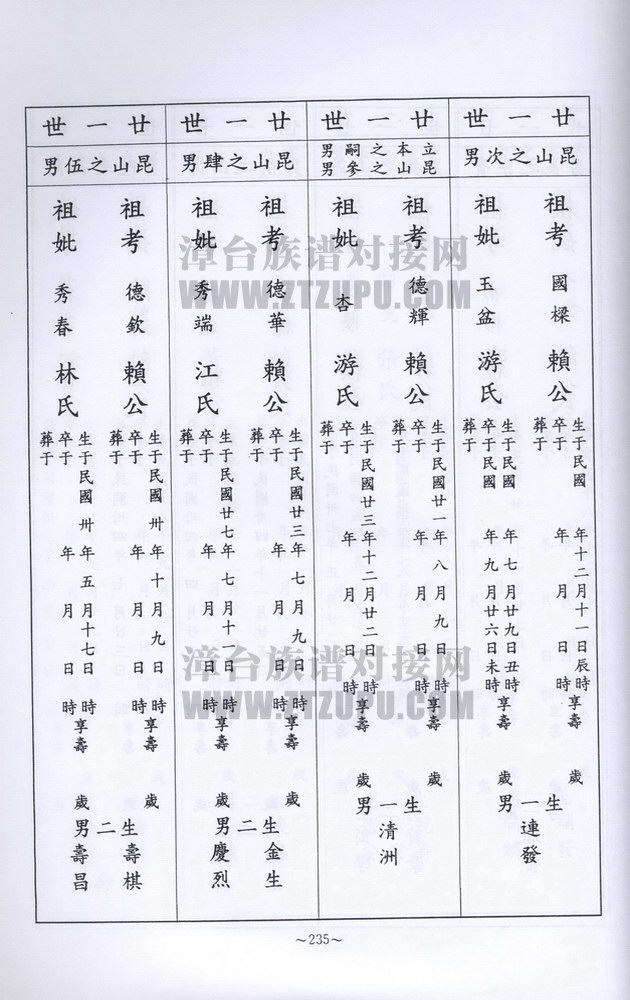 廿一世
昆山之次男
祖考 國樑 賴公
生于民國 年十二月十一日辰時
卒于 年 月 日 時享壽 歲
葬于
祖妣 玉盆 游氏
生于民國 年七月廿九日丑時
卒于民國 年九月廿六日未時享壽
葬于
生一男
連發
廿一世
立本之嗣男
昆山之參男
祖考 德輝 賴公
生于民國廿一年八月九日 時
卒于 年 月 日 時享壽 歲
葬于
祖妣 杏 游氏
生于民國廿三年十二月廿二日 時
卒于 年 月 日 時享壽 歲
葬于
生一男
清洲
廿一世
昆山之肆男
祖考 德華 賴公
生于民國廿三年七月九日 時
卒于 年 月 日 時享壽 歲
葬于
祖妣 秀端 江氏
生于民國廿七年七月十一日 時
卒于 年 月 日 時享壽 歲
葬于
生二男
金生
慶烈
廿一世
昆山之伍男
祖考 德欽 賴公
生于民國卅年十月九日 時
卒于 年 月 日 時享壽 歲
葬于
祖妣 秀春 林氏
生于民國卅年五月十七日 時
卒于 年 月 日 時享壽 歲
葬于
生二男
壽棋
壽昌
～235～
漳台族谱对接网
WWW.ZTZUPU.COM
漳台族谱对接网
WWW.ZTZUPU.COM